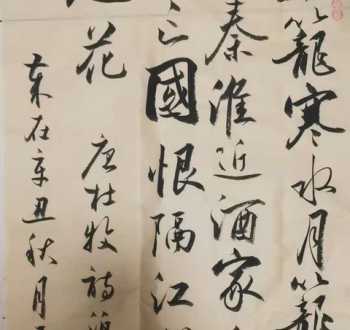 籠寒水月籠
秦淮近酒家
亡國恨隔江
花 唐杜牧詩泊
辛丑秋月